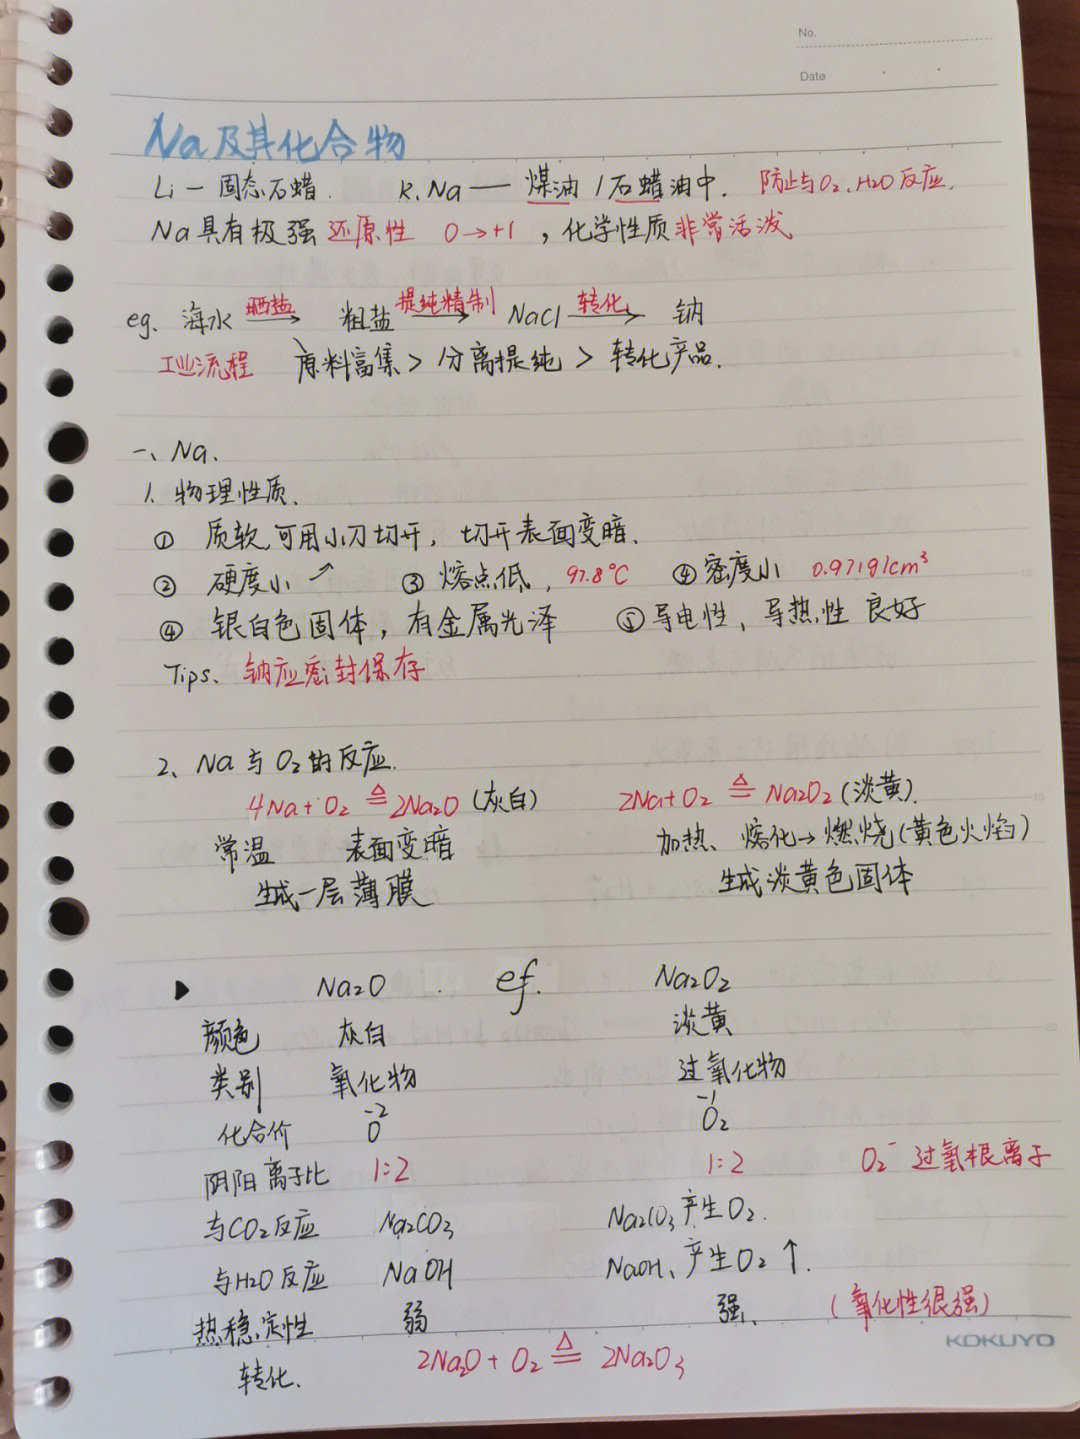 No.
Date
Na及其化合物
Li — 固态石蜡. K、Na — 煤油/石蜡油中. 防止与O₂、H₂O反应.
Na具有极强还原性 0→+1，化学性质非常活泼
eg. 海水 晒盐→ 粗盐 提纯精制→ NaCl 转化→ 钠
工业流程 原料富集 > 分离提纯 > 转化产品.
一、Na、
1. 物理性质.
① 质软,可用小刀切开，切开表面变暗.
② 硬度小↗ ③ 熔点低，97.8℃ ④ 密度小 0.971g/cm³
④ 银白色固体，有金属光泽 ⑤ 导电性、导热性 良好
Tips、钠应密封保存
2、Na与O₂的反应.
4Na+O₂ ≜ 2Na₂O (灰白) 2Na+O₂ ≜ Na₂O₂ (淡黄).
常温 表面变暗 加热、熔化→燃烧(黄色火焰)
生成一层薄膜 生成淡黄色固体
▶ Na₂O . ef. Na₂O₂
颜色 灰白 淡黄
类别 氧化物 过氧化物
化合价 O⁻² O₂⁻¹
阴阳离子比 1:2 1:2 O₂⁻ 过氧根离子
与CO₂反应 Na₂CO₃ Na₂CO₃,产生O₂.
与H₂O反应 NaOH NaOH、产生O₂↑.
热稳定性 弱 强、 (氧化性很强)
KOKUYO
转化、 2Na₂O + O₂ ≜ 2Na₂O₃